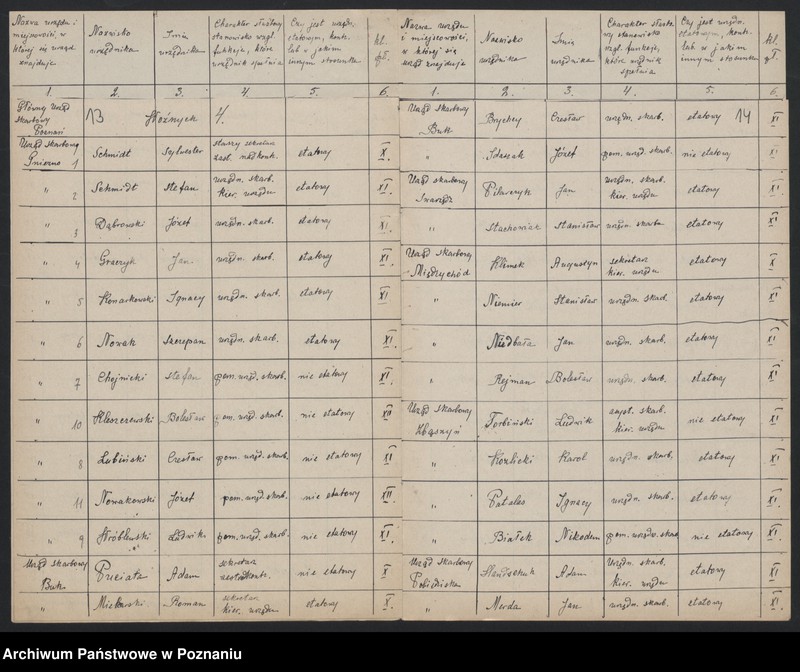 Nazwa urzędu i
miejscowości, w
której się urząd
znajduje
Nazwisko
urzędnika
Imię
urzędnika
Charakter służbowy
stanowisko wzgl.
funkcje, które
urzędnik spełnia
Czy jest urzędn.
etatowym, kontr.
lub w jakim
innym stosunku
kl.
1. 2. 3. 4. 5. 6.
Główny Urząd
Skarbowy
Poznań
13 Woźnych 4.
Urząd Skarbowy
Gniezno 1 Schmidt Sylwester starszy sekretarz etatowy X
" 2 Schmidt Stefan urzędn. skarb. kier. urzędu etatowy XI
" 3 Dąbrowski Józef urzędn. skarb. etatowy XI
" 4 Graczyk Jan urzędn. skarb. etatowy XI
" 5 Konarkowski Ignacy urzędn. skarb. etatowy XI
" 6 Nowak Szczepan urzędn. skarb. etatowy XI
" 7 Chojnicki Stefan pom. urzęd. skarb. nie etatowy XI.
" 10 Kleszczewski Bolesław pom. urzęd. skarb. nie etatowy XII
" 8 Lubiński Czesław pom. urzęd. skarb. nie etatowy XI
" 11 Nowakowski Józef pom. urzęd. skarb. nie etatowy XII.
" 9 Wróblewski Ludwik pom. urzęd. skarb. nie etatowy XI.
Urząd Skarbowy
Buk Puciata Adam sekretarz nie etatowy X
" Mielcarski Roman sekretarz kier. urzędu etatowy X.
Nazwa urzędu
i miejscowości,
w której się
urząd znajduje
Nazwisko
urzędnika
Imię
urzędnika
Charakter służbo
wy stanowisko
wzgl. funkcje,
które urzędnik
spełnia
Czy jest urzędn.
etatowym, kontr.
lub w jakim
innym stosunku
kl.
1. 2. 3. 4. 5. 6.
Urząd Skarbowy
Buk Brychcy Czesław urzędn. skarb. etatowy 14 XI
" Józef pom. urzęd. skarb. nie etatowy XI
Urząd skarbowy
Swarzędz Pilarczyk Jan urzędn. skarb. kier. urzędu etatowy XI
" Stachowiak Stanisław urzędn. skarbu etatowy XI
Urząd Skarbowy
Międzychód Klimek Augustyn sekretarz kier. urzędu etatowy X
" Niemier Stanisław urzędn. skarb. etatowy XI
" Niedbała Jan urzędn. skarb. etatowy XI
" Rejman Bolesław urzędn. skarb. etatowy XI
Urząd Skarbowy
Zbąszyń Torbiński Ludwik asyst. skarb. kier. urzędu nie etatowy XI
" Kozlicki Karol urzędn. skarb. etatowy XI
" Patalas Ignacy urzędn. skarb. etatowy XI
" Białek Nikodem pom. urzędn. skarb. nie etatowy XI.
Urząd Skarbowy
Pobiedziska Adam Urzędn. skarb. kier. urzędu etatowy XI
" Merda Jan urzędn. skarb. etatowy XI
Archiwum Państwowe w Poznaniu